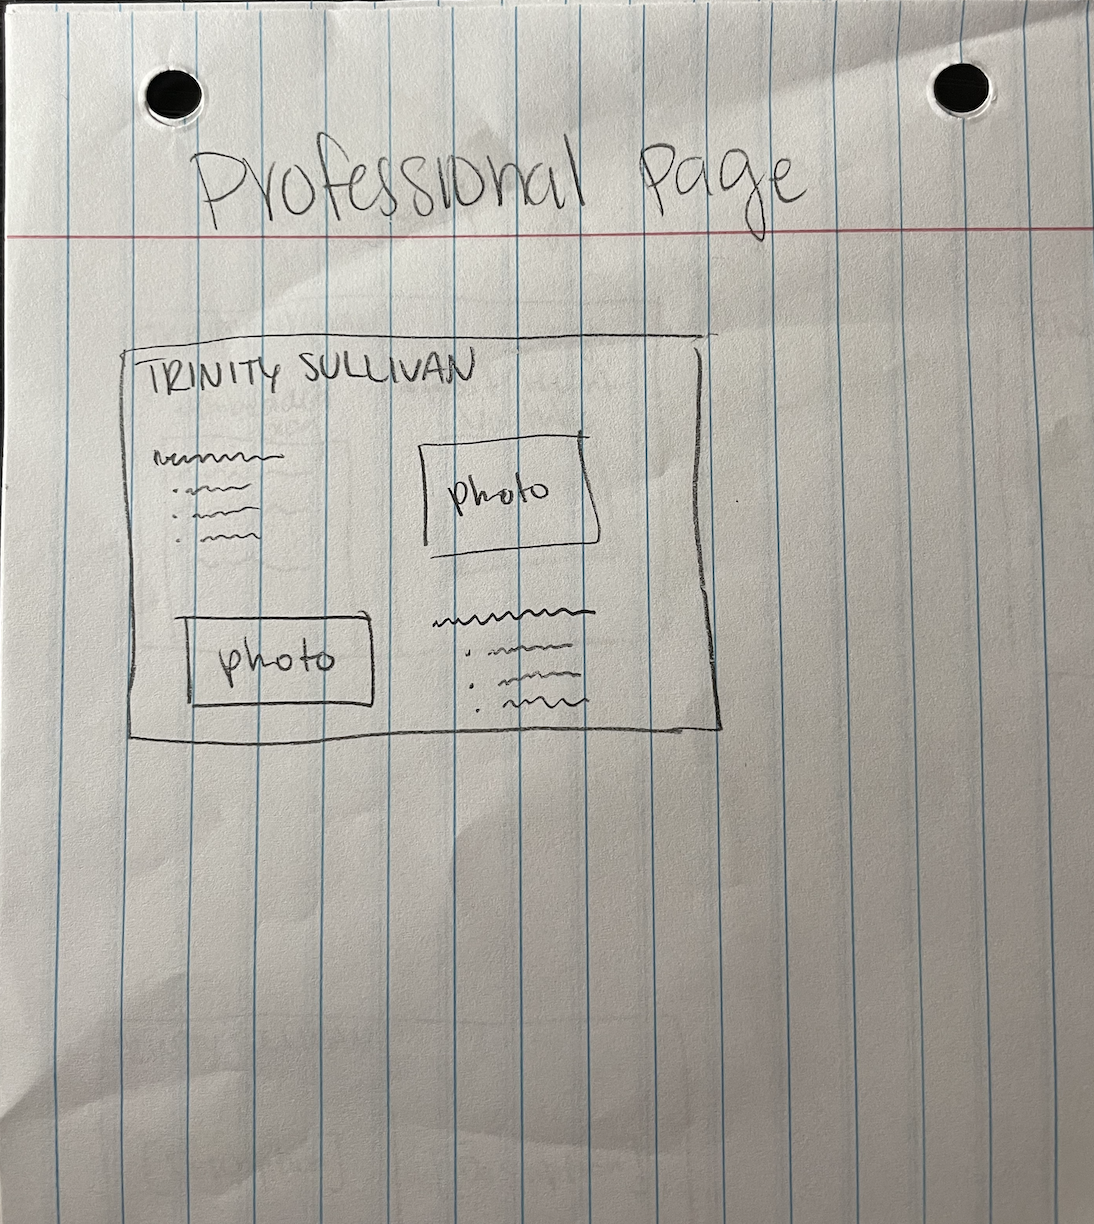 Professional page
TRINITY SULLIVAN
photo
photo